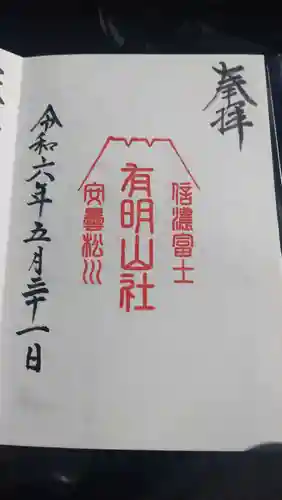 奉拝
信濃富士
有明山社
安曇松川
令和六年五月二十一日